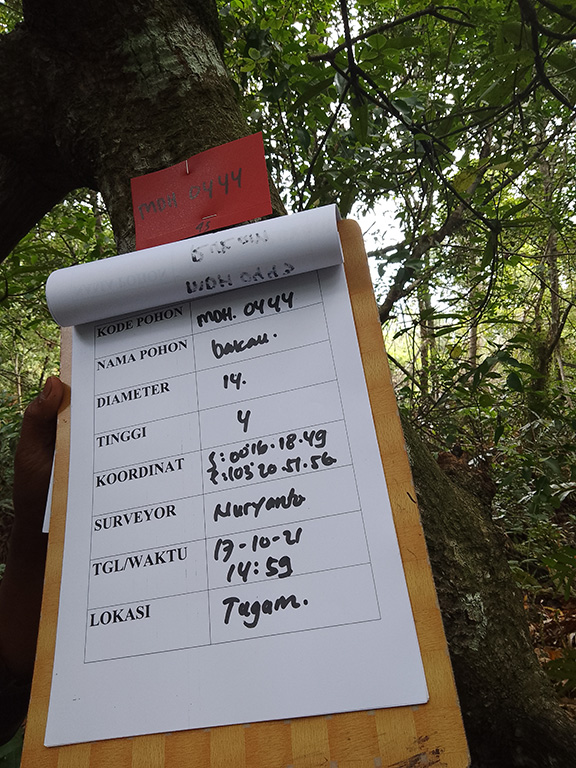 MDH. 0444
KODE POHON MDH. 0444
NAMA POHON bakau.
DIAMETER 14.
TINGGI 4
KOORDINAT S: 00°16.18.49
E: 103°20.51.56
SURVEYOR Nuryanto
TGL/WAKTU 17-10-21
14:59
LOKASI Tugam.